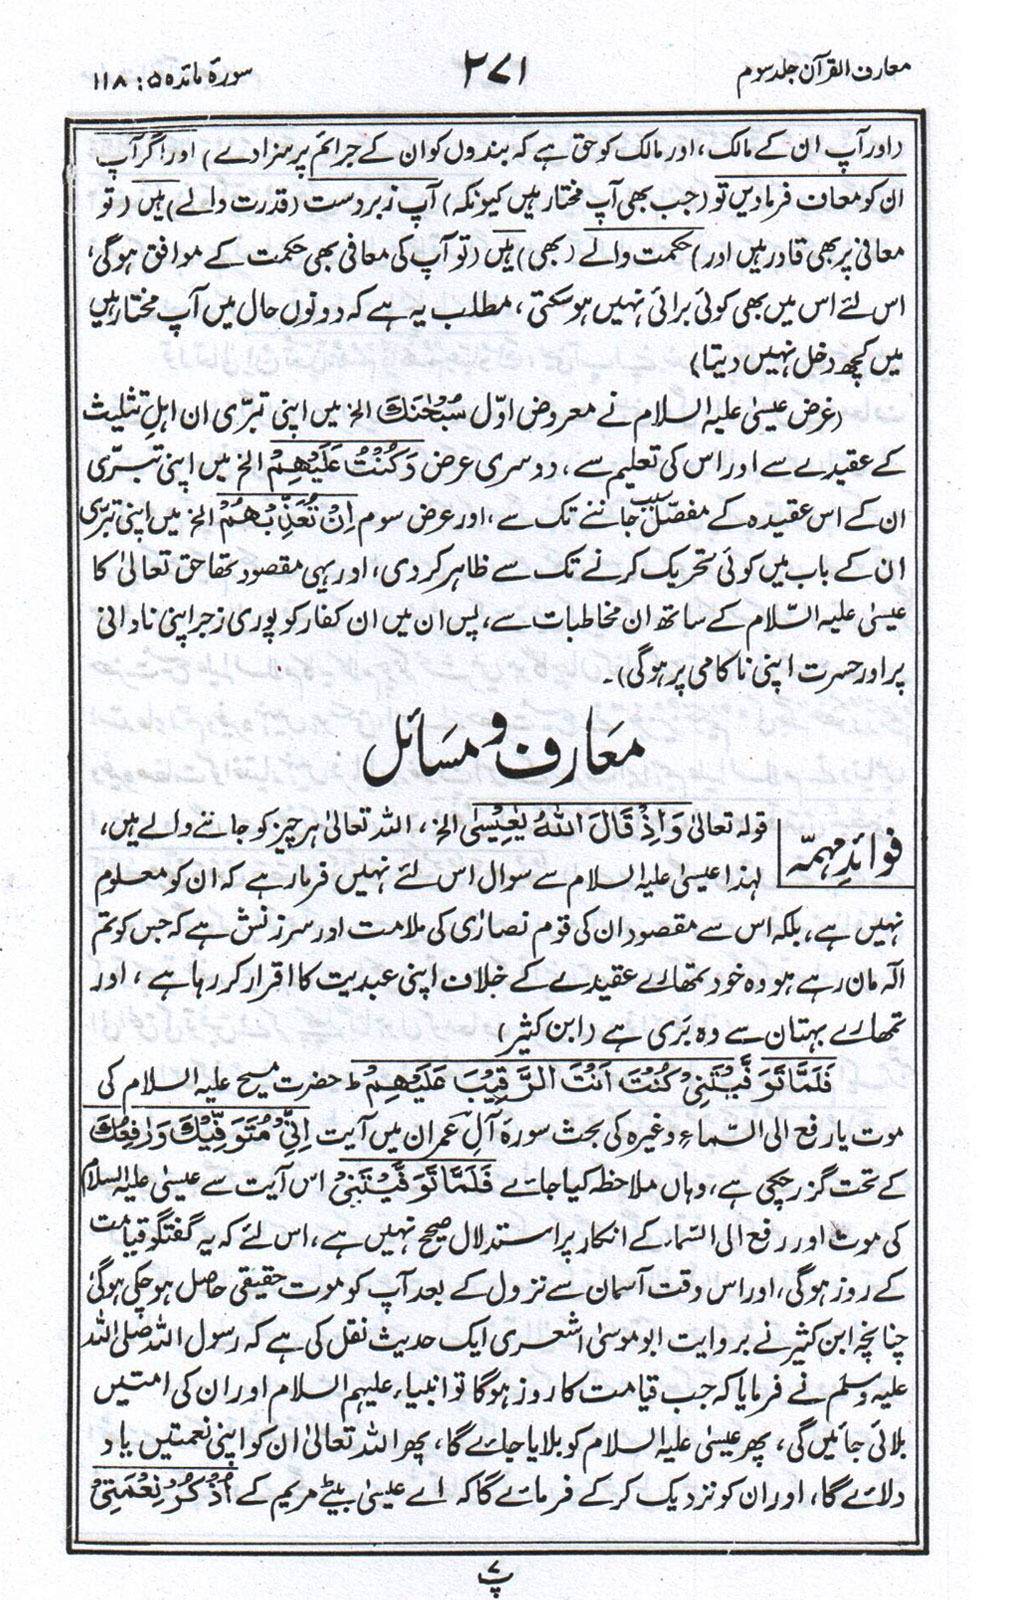 معارف القرآن جلد سوم
۲۷۱
سورۃ مائدہ ۵ : ۱۱۸
(اور آپ ان کے مالک، اور مالک کو حق ہے کہ بندوں کو ان کے جرائم پر سزا دے) اور اگر آپ
ان کو معاف فرمادیں تو (جب بھی آپ مختار ہیں کیونکہ) آپ زبردست (قدرت والے) ہیں (تو
معافی پر بھی قادر ہیں اور) حکمت والے (بھی) ہیں (تو آپ کی معافی بھی حکمت کے موافق ہوگی،
اس لئے اس میں بھی کوئی برائی نہیں ہوسکتی، مطلب یہ ہے کہ دونوں حال میں آپ مختار ہیں
میں کچھ دخل نہیں دیتا)
(غرض عیسیٰ علیہ السلام نے معروض اوّل سُبْحٰنَكَ الخ میں اپنی تبرّی ان اہلِ تثلیث
کے عقیدے سے اور اس کی تعلیم سے، دوسری عرض وَكُنْتُ عَلَيْهِمْ الخ میں اپنی تبرّی
ان کے اس عقیدہ کے مفصّل سبب جاننے تک سے، اور عرض سوم اِنْ تُعَذِّبْهُمْ الخ میں اپنی تبرّی
ان کے باب میں کوئی تحریک کرنے تک سے ظاہر کردی، اور یہی مقصود تھا حق تعالیٰ کا
عیسیٰ علیہ السّلام کے ساتھ ان مخاطبات سے، پس ان میں ان کفار کو پوری زجر اپنی نادانی
پر اور حسرت اپنی ناکامی پر ہوگی)۔
معارف و مسائل
فوائدِ مہمّہ
قولہ تعالیٰ وَاِذْ قَالَ اللّٰهُ يٰعِيْسَى الخ، اللہ تعالیٰ ہر چیز کو جاننے والے ہیں،
لہٰذا عیسیٰ علیہ السلام سے سوال اس لئے نہیں فرمارہے کہ ان کو معلوم
نہیں ہے، بلکہ اس سے مقصود ان کی قوم نصاریٰ کی ملامت اور سرزنش ہے کہ جس کو تم
الٰہ مان رہے ہو وہ خود تمھارے عقیدے کے خلاف اپنی عبدیت کا اقرار کر رہا ہے، اور
تمھارے بہتان سے وہ بَری ہے (ابن کثیر)
فَلَمَّا تَوَفَّيْتَنِيْ كُنْتَ اَنْتَ الرَّقِيْبَ عَلَيْهِمْ ط حضرت مسیح علیہ السلام کی
موت یا رفع الی السّماء وغیرہ کی بحث سورۃ آلِ عمران میں آیت اِنِّيْ مُتَوَفِّيْكَ وَرَافِعُكَ
کے تحت گزر چکی ہے، وہاں ملاحظہ کیا جائے فَلَمَّا تَوَفَّيْتَنِيْ اس آیت سے عیسیٰ علیہ السلام
کی موت اور رفع الی السّماء کے انکار پر استدلال صحیح نہیں ہے، اس لئے کہ یہ گفتگو قیامت
کے روز ہوگی، اور اس وقت آسمان سے نزول کے بعد آپ کو موت حقیقی حاصل ہوچکی ہوگی
چنانچہ ابن کثیر نے بروایت ابوموسیٰ اشعری ایک حدیث نقل کی ہے کہ رسول اللہ صلی اللہ
علیہ وسلم نے فرمایا کہ جب قیامت کا روز ہوگا تو انبیاء علیہم السلام اور ان کی امتیں
بلائی جائیں گی، پھر عیسیٰ علیہ السلام کو بلایا جائے گا، پھر اللہ تعالیٰ ان کو اپنی نعمتیں یاد
دلائے گا، اور ان کو نزدیک کرکے فرمائے گا کہ اے عیسیٰ بیٹے مریم کے اُذْكُرْ نِعْمَتِيْ
پ۷